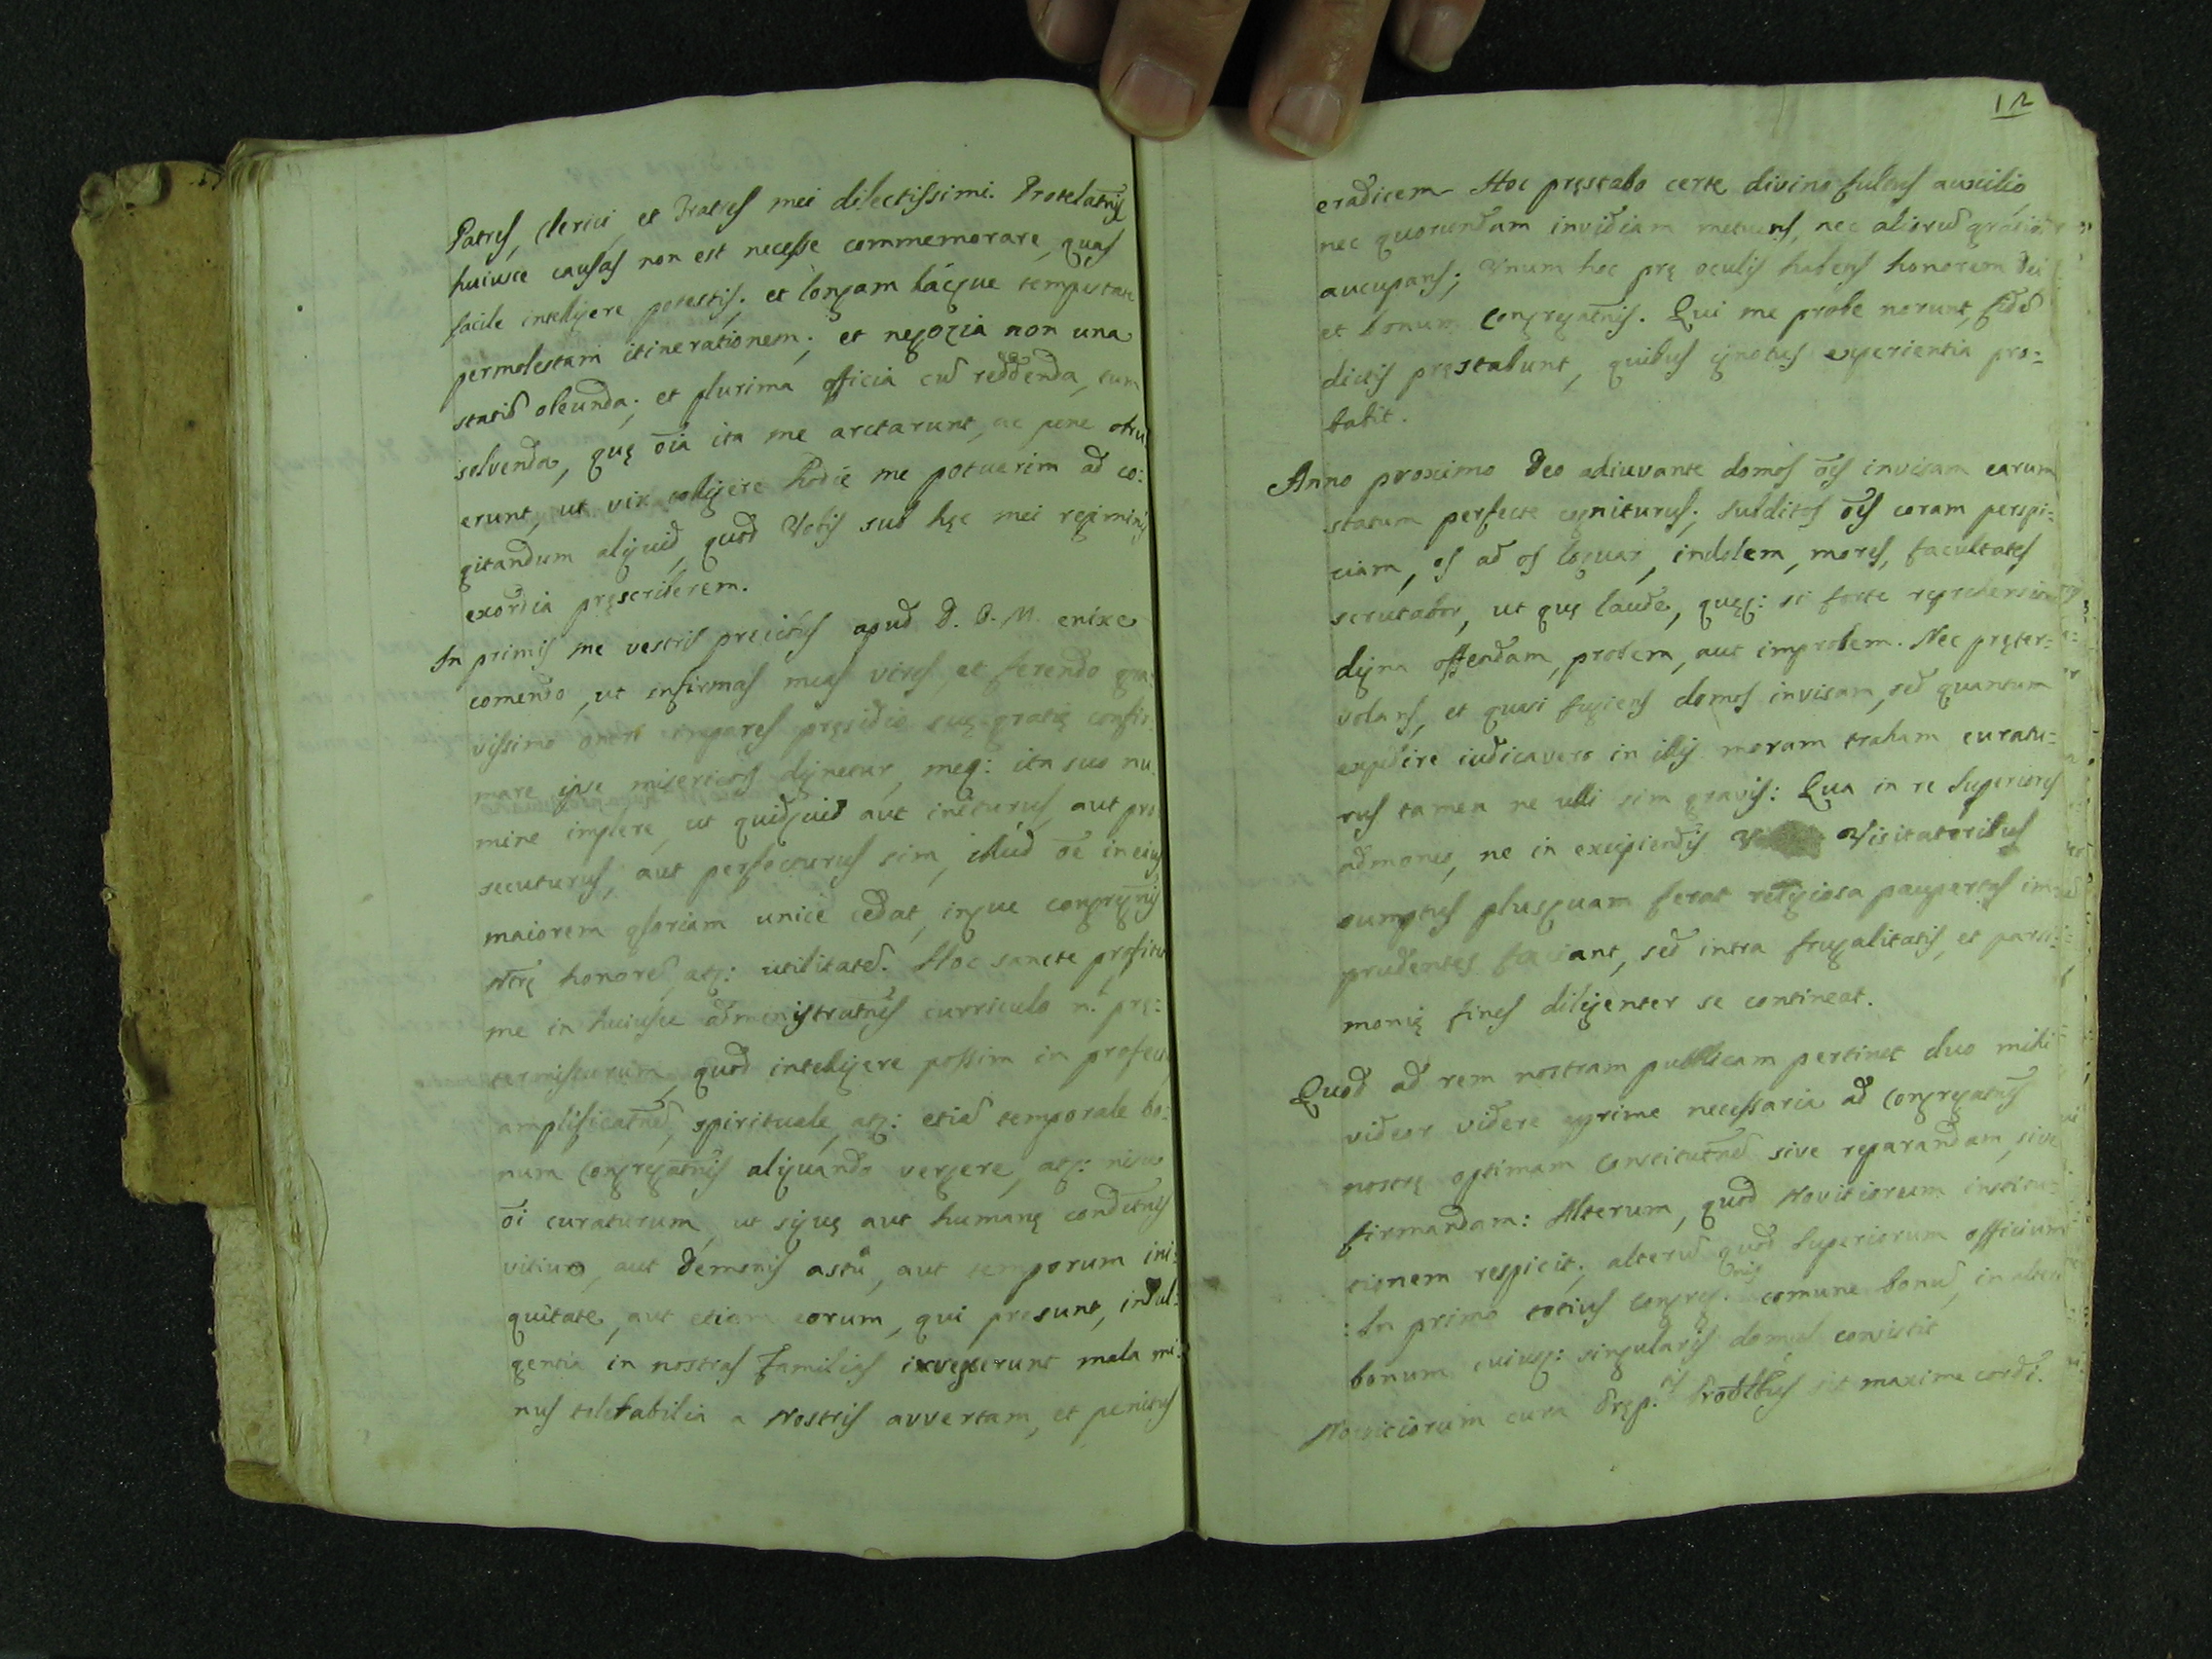 Patres, Clerici, et Fratres mei dilectissimi. Protelatñis
huiusce causas non est necesse commemorare, quas
facile intelligere potestis; et longam hácque tempestate
permolestam itinerationem; et negozia non una
statiõ obeunda; et plurima officia cũ reddenda, tum
solvenda, quę oĩa ita me arctarunt, ac pene obru
erunt, ut vix colligere hodie me potuerim ad co:
gitandum aliquid, quod Vobis sub hęc mei regiminis
exordia pręscriberem.
In primis me vestris precibus apud D. O. M. enixe
comendo, ut infirmas meas vires, et ferendo gra:
vissimo oneri impares pręsidio suę gratię confir:
mare ipse misericors dignetur, meq: ita suo nu:
mine implere, ut quidquid aut initurus, aut pro
secuturus, aut perfecturus sim, illud oẽ in eius
maiorem gloriam unicè cedat, inque congrẽgnis
nr̃ę honorẽ, atq: utilitatẽ. Hoc sancte profiteor
me in huiusce administratñis curriculo n. prę:
termissurum, quod intelligere possim in profectũ,
amplificatñem, spirituale, atq: etiã temporale bo:
num Congregatñis aliquando vergere, atq: nisu
oĩ curaturum, ut siquę aut humanę conditñis
vitium, aut dęmonis astu, aut temporum ini:
quitate, aut etiam eorum, qui presunt, indul:
gentia in nostras familias irrepserunt mala mi:
nus tolerabilia a Nostris avvertam, et penitus
12
eradicem. Hoc pręstabo certe divino fultus auxilio
nec quorundam invidiam metuens, nec aliorũ gratiã
aucupans; Vnum hoc prę oculis habens honorem Dei
et bonum Congregatñis. Qui me probe norunt, fidẽ
dictis pręstabunt, quibus ignotus experientia pro:
babit.
Anno proximo Deo adiuvante domos oẽs invisam earum
statum perfecte cogniturus; subditos oẽs coram perspi:
ciam, os ad os loquar, indolem, mores, facultates
scrutabor, ut quę laude, quęq: si forte reprehensione
digna offendam, probem, aut improbem. Nec pręter:
volans, et quasi fugiens domos invisam, sed quantum
expedire iudicavero in illis moram traham curatu:
rus tamen ne ulli sim gravis: Qua in re Superiores
admoneo, ne in excipiendis Visitatoribus
sumptus plusquam ferat religiosa paupertas im:
prudentes faciant, sed intra frugalitatis, et parsi:
monię fines diligenter se contineat.
Quod ad rem nostram publicam pertinet duo mihi
videor videre apprime necessaria ad Congregatñis
nostrę optimam Constitutñem sive reparandam, sive
firmandam: Alterum, quod Novitiorum institu:
tionem respicit; alterũ quod Superiorum officium
: In primo totius Congreg.nis comune bonũ, in altero
bonum cuiusq: singularis domus consistit
Novitiorum cura Pręp.is Prõalibus sit maxime cordi.